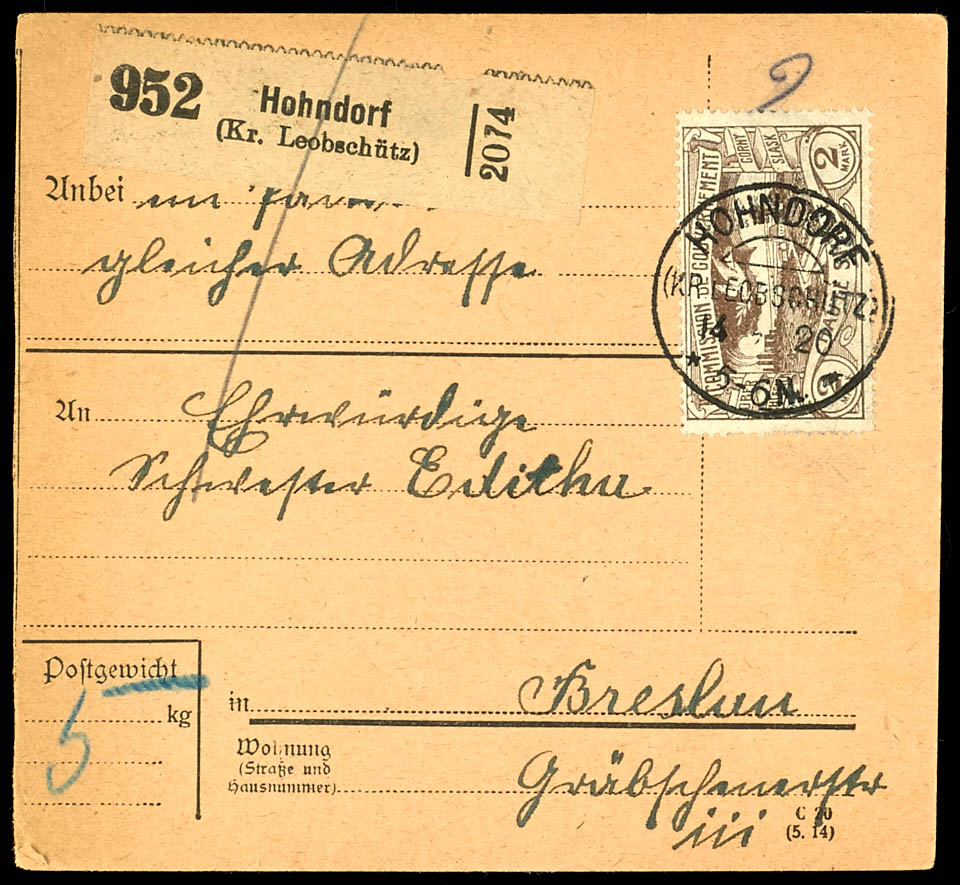 952 Hohndorf
(Kr. Leobschütz)
2074
Anbei ein
gleicher Adresse
An Ehrwürdige
Schwester Editha
Postgewicht
5 kg
in Breslau
Wohnung
(Straße und
Hausnummer)
Gräbschenerstr
C 20
(5. 14)
GÓRNY
ŚLĄSK
2
MARK
COMMISSION DE GOUVERNEMENT
HAUTE
HOHNDORF
(KR. LEOBSCHÜTZ)
14 20
5-6 N.